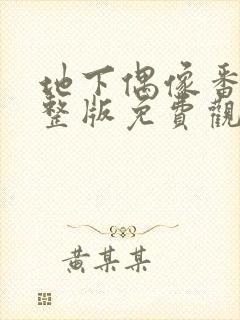 地下偶像番
整版免費觀
黄某某